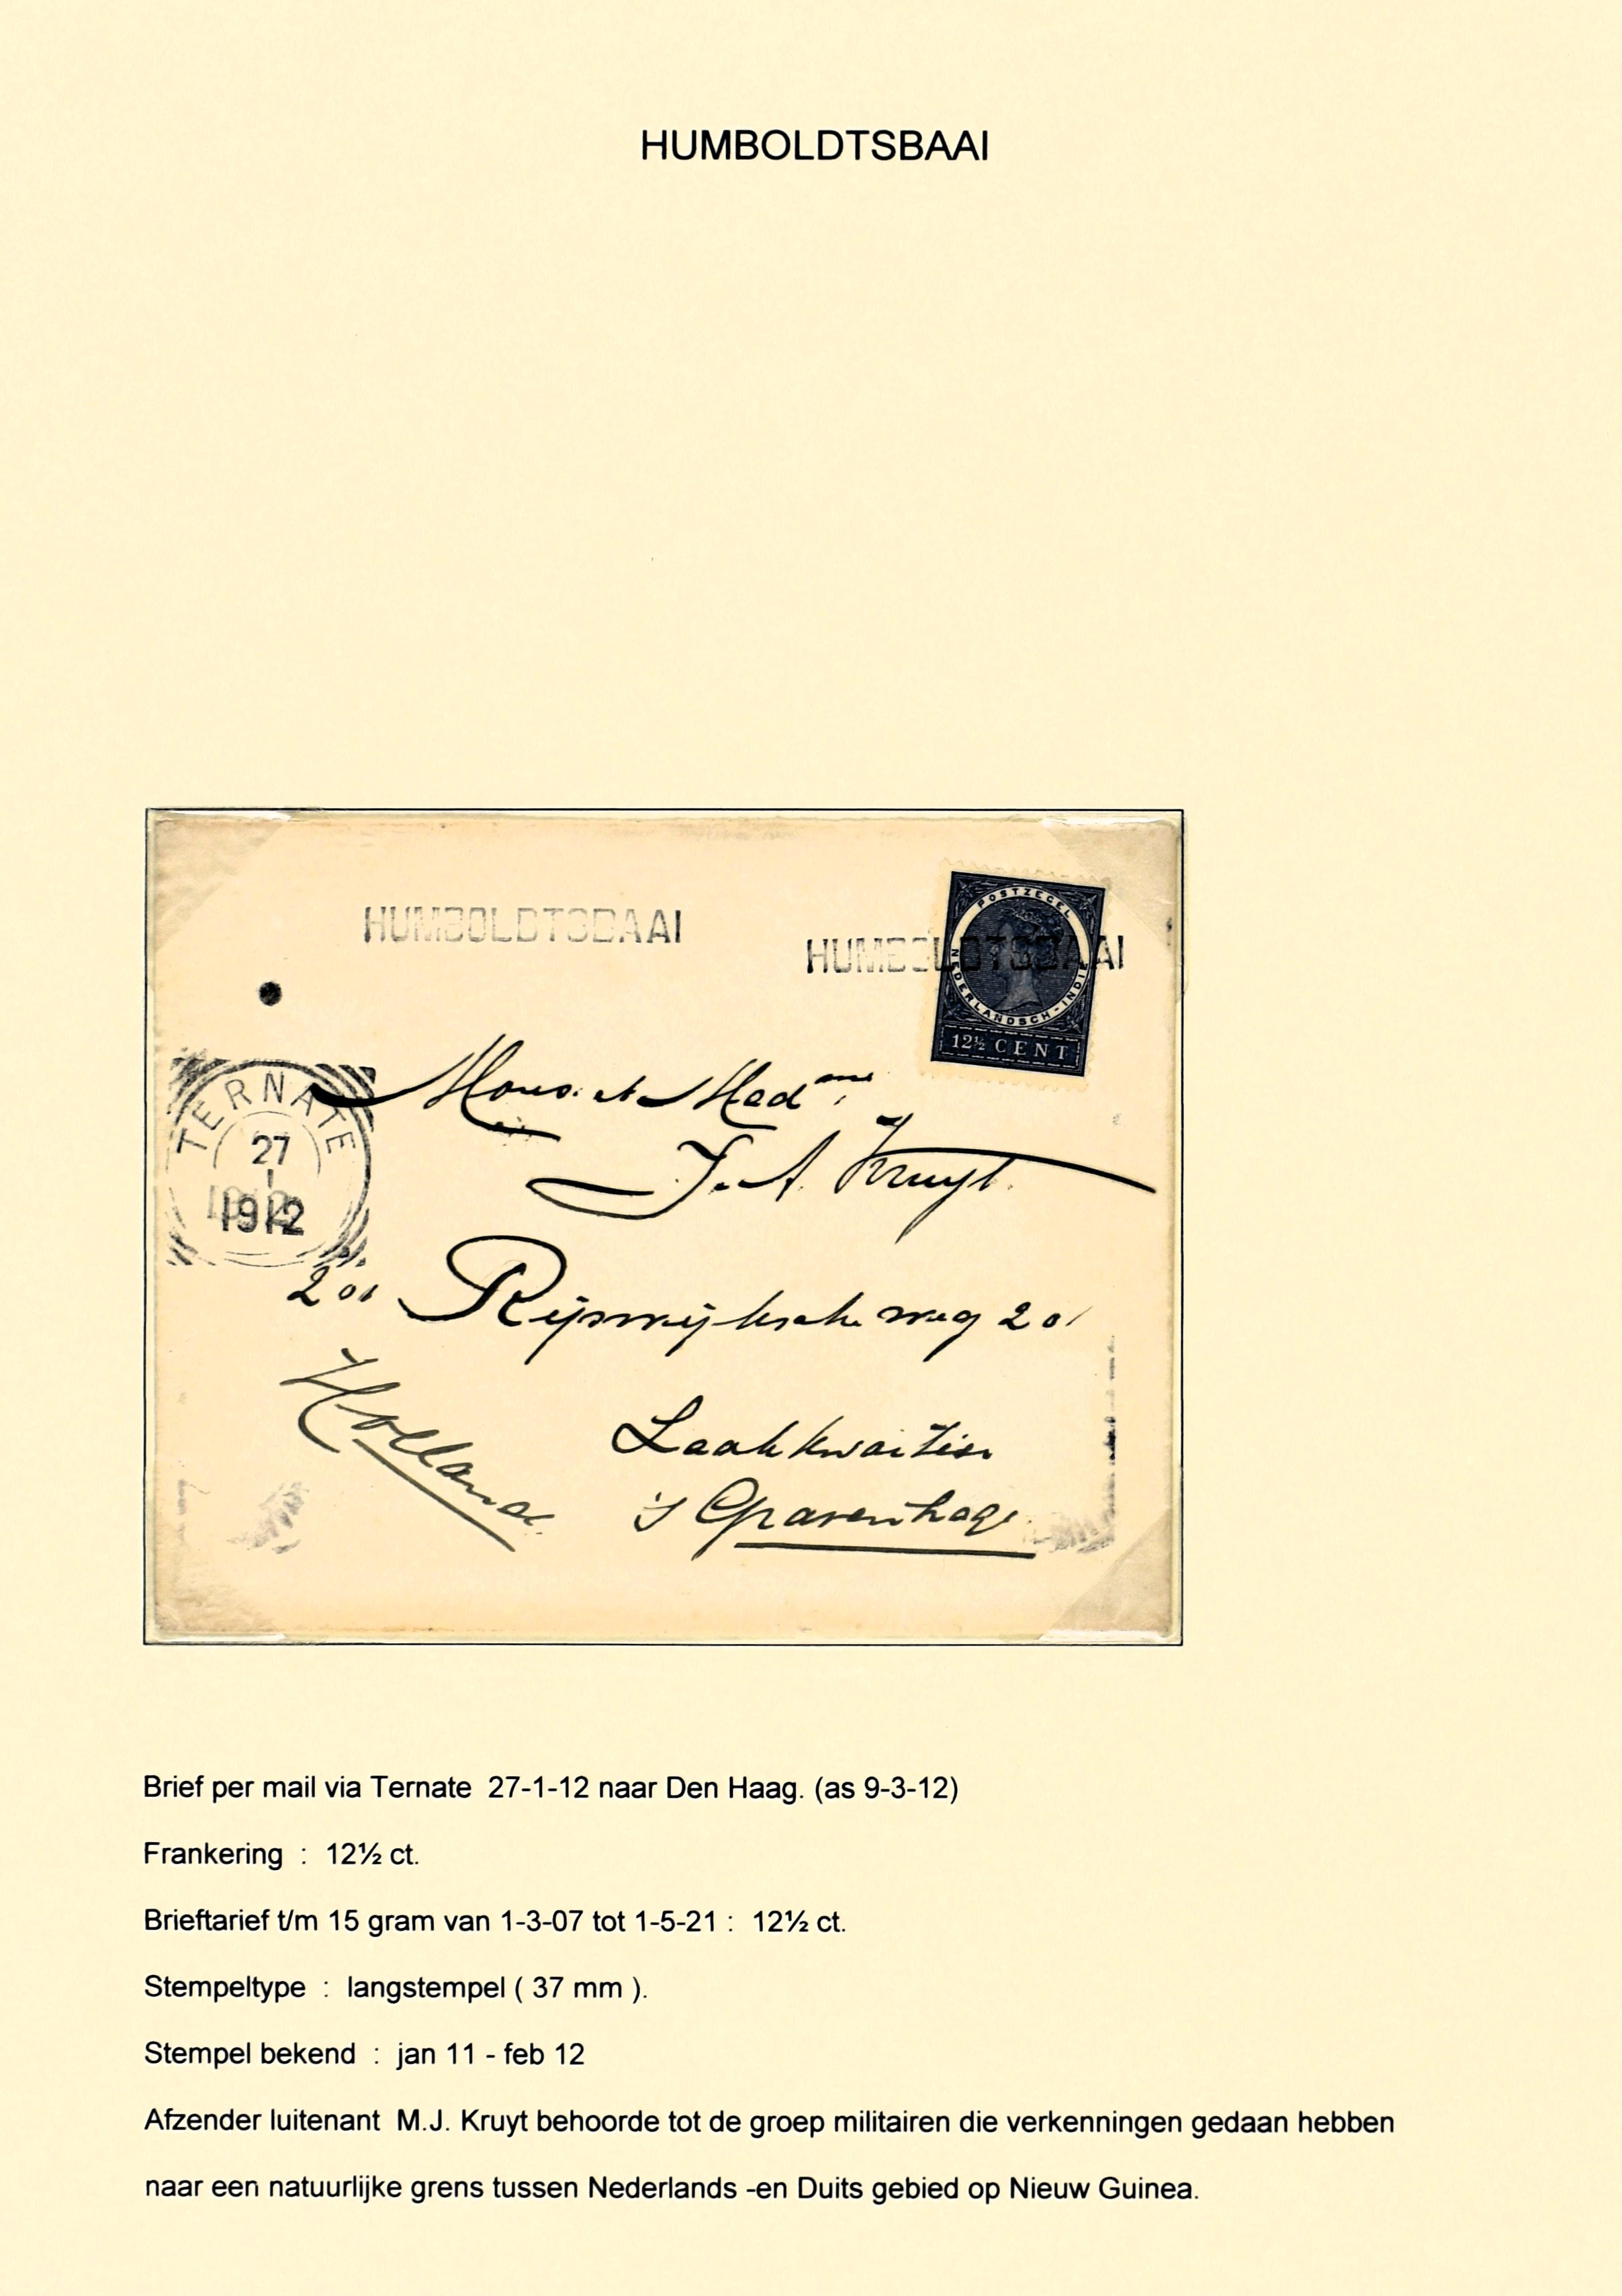 HUMBOLDTSBAAI
HUMBOLDTSBAAI
HUMBOLDTSBAAI
POSTZEGEL
NEDERLANDSCH-INDIE
12½ CENT
TERNATE
27
1
1912
Mons. et Madme
J. A. Kruyt.
201 Rijswijksche weg 201
Laakkwartier
's Gravenhage
Holland
Brief per mail via Ternate 27-1-12 naar Den Haag. (as 9-3-12)
Frankering : 12½ ct.
Brieftarief t/m 15 gram van 1-3-07 tot 1-5-21 : 12½ ct.
Stempeltype : langstempel ( 37 mm ).
Stempel bekend : jan 11 - feb 12
Afzender luitenant M.J. Kruyt behoorde tot de groep militairen die verkenningen gedaan hebben
naar een natuurlijke grens tussen Nederlands -en Duits gebied op Nieuw Guinea.